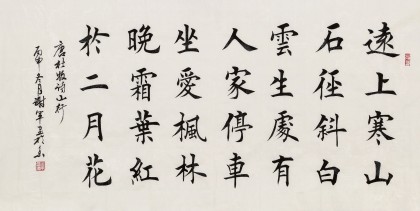 遠上寒山
石徑斜白
雲生處有
人家停車
坐愛楓林
晚霜葉紅
於二月花
唐杜牧詩山行
丙申冬月謝軍書於